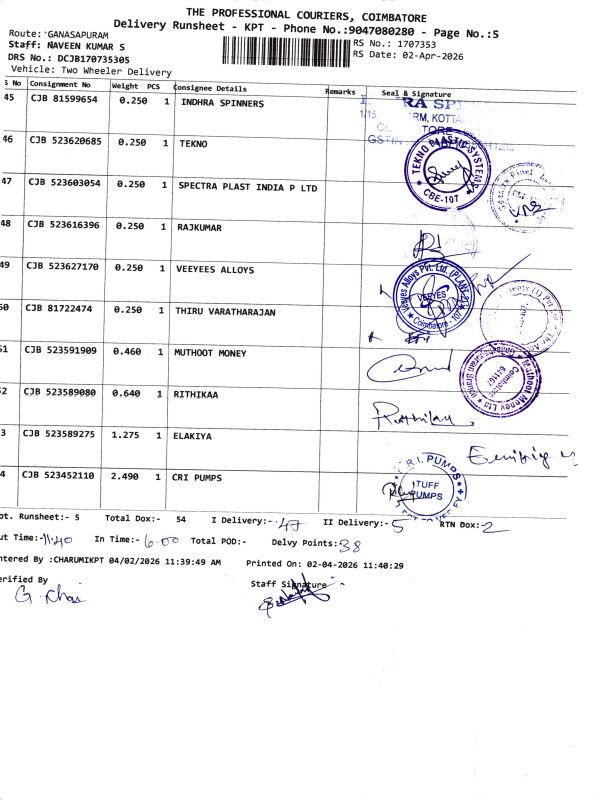 THE PROFESSIONAL COURIERS, COIMBATORE
Delivery Runsheet - KPT - Phone No.:9047080280 - Page No.:5
Route: GANASAPURAM
Staff: NAVEEN KUMAR S RS No.: 1707353
DRS No.: DCJB170735305 RS Date: 02-Apr-2026
Vehicle: Two Wheeler Delivery
S No Consignment No Weight PCS Consignee Details Remarks Seal & Signature
45 CJB 81599654 0.250 1 INDHRA SPINNERS
46 CJB 523620685 0.250 1 TEKNO
TEKNO PLASTIC SYSTEMS
CBE-107
47 CJB 523603054 0.250 1 SPECTRA PLAST INDIA P LTD
48 CJB 523616396 0.250 1 RAJKUMAR
49 CJB 523627170 0.250 1 VEEYEES ALLOYS
Veeyes Alloys Pvt. Ltd.
VEEYES
Coimbatore - 107
50 CJB 81722474 0.250 1 THIRU VARATHARAJAN
51 CJB 523591909 0.460 1 MUTHOOT MONEY
Muthoot Money Ltd
Coimbatore
641107
52 CJB 523589080 0.640 1 RITHIKAA
53 CJB 523589275 1.275 1 ELAKIYA
54 CJB 523452110 2.490 1 CRI PUMPS
C.R.I. PUMPS
TUFF
PUMPS
pt. Runsheet:- 5 Total Dox:- 54 I Delivery:- 47 II Delivery:- 5 RTN Dox:- 2
ut Time:- 11.40 In Time:- 6.00 Total POD:- Delvy Points: 38
ntered By :CHARUMIKPT 04/02/2026 11:39:49 AM Printed On: 02-04-2026 11:40:29
erified By Staff Signature